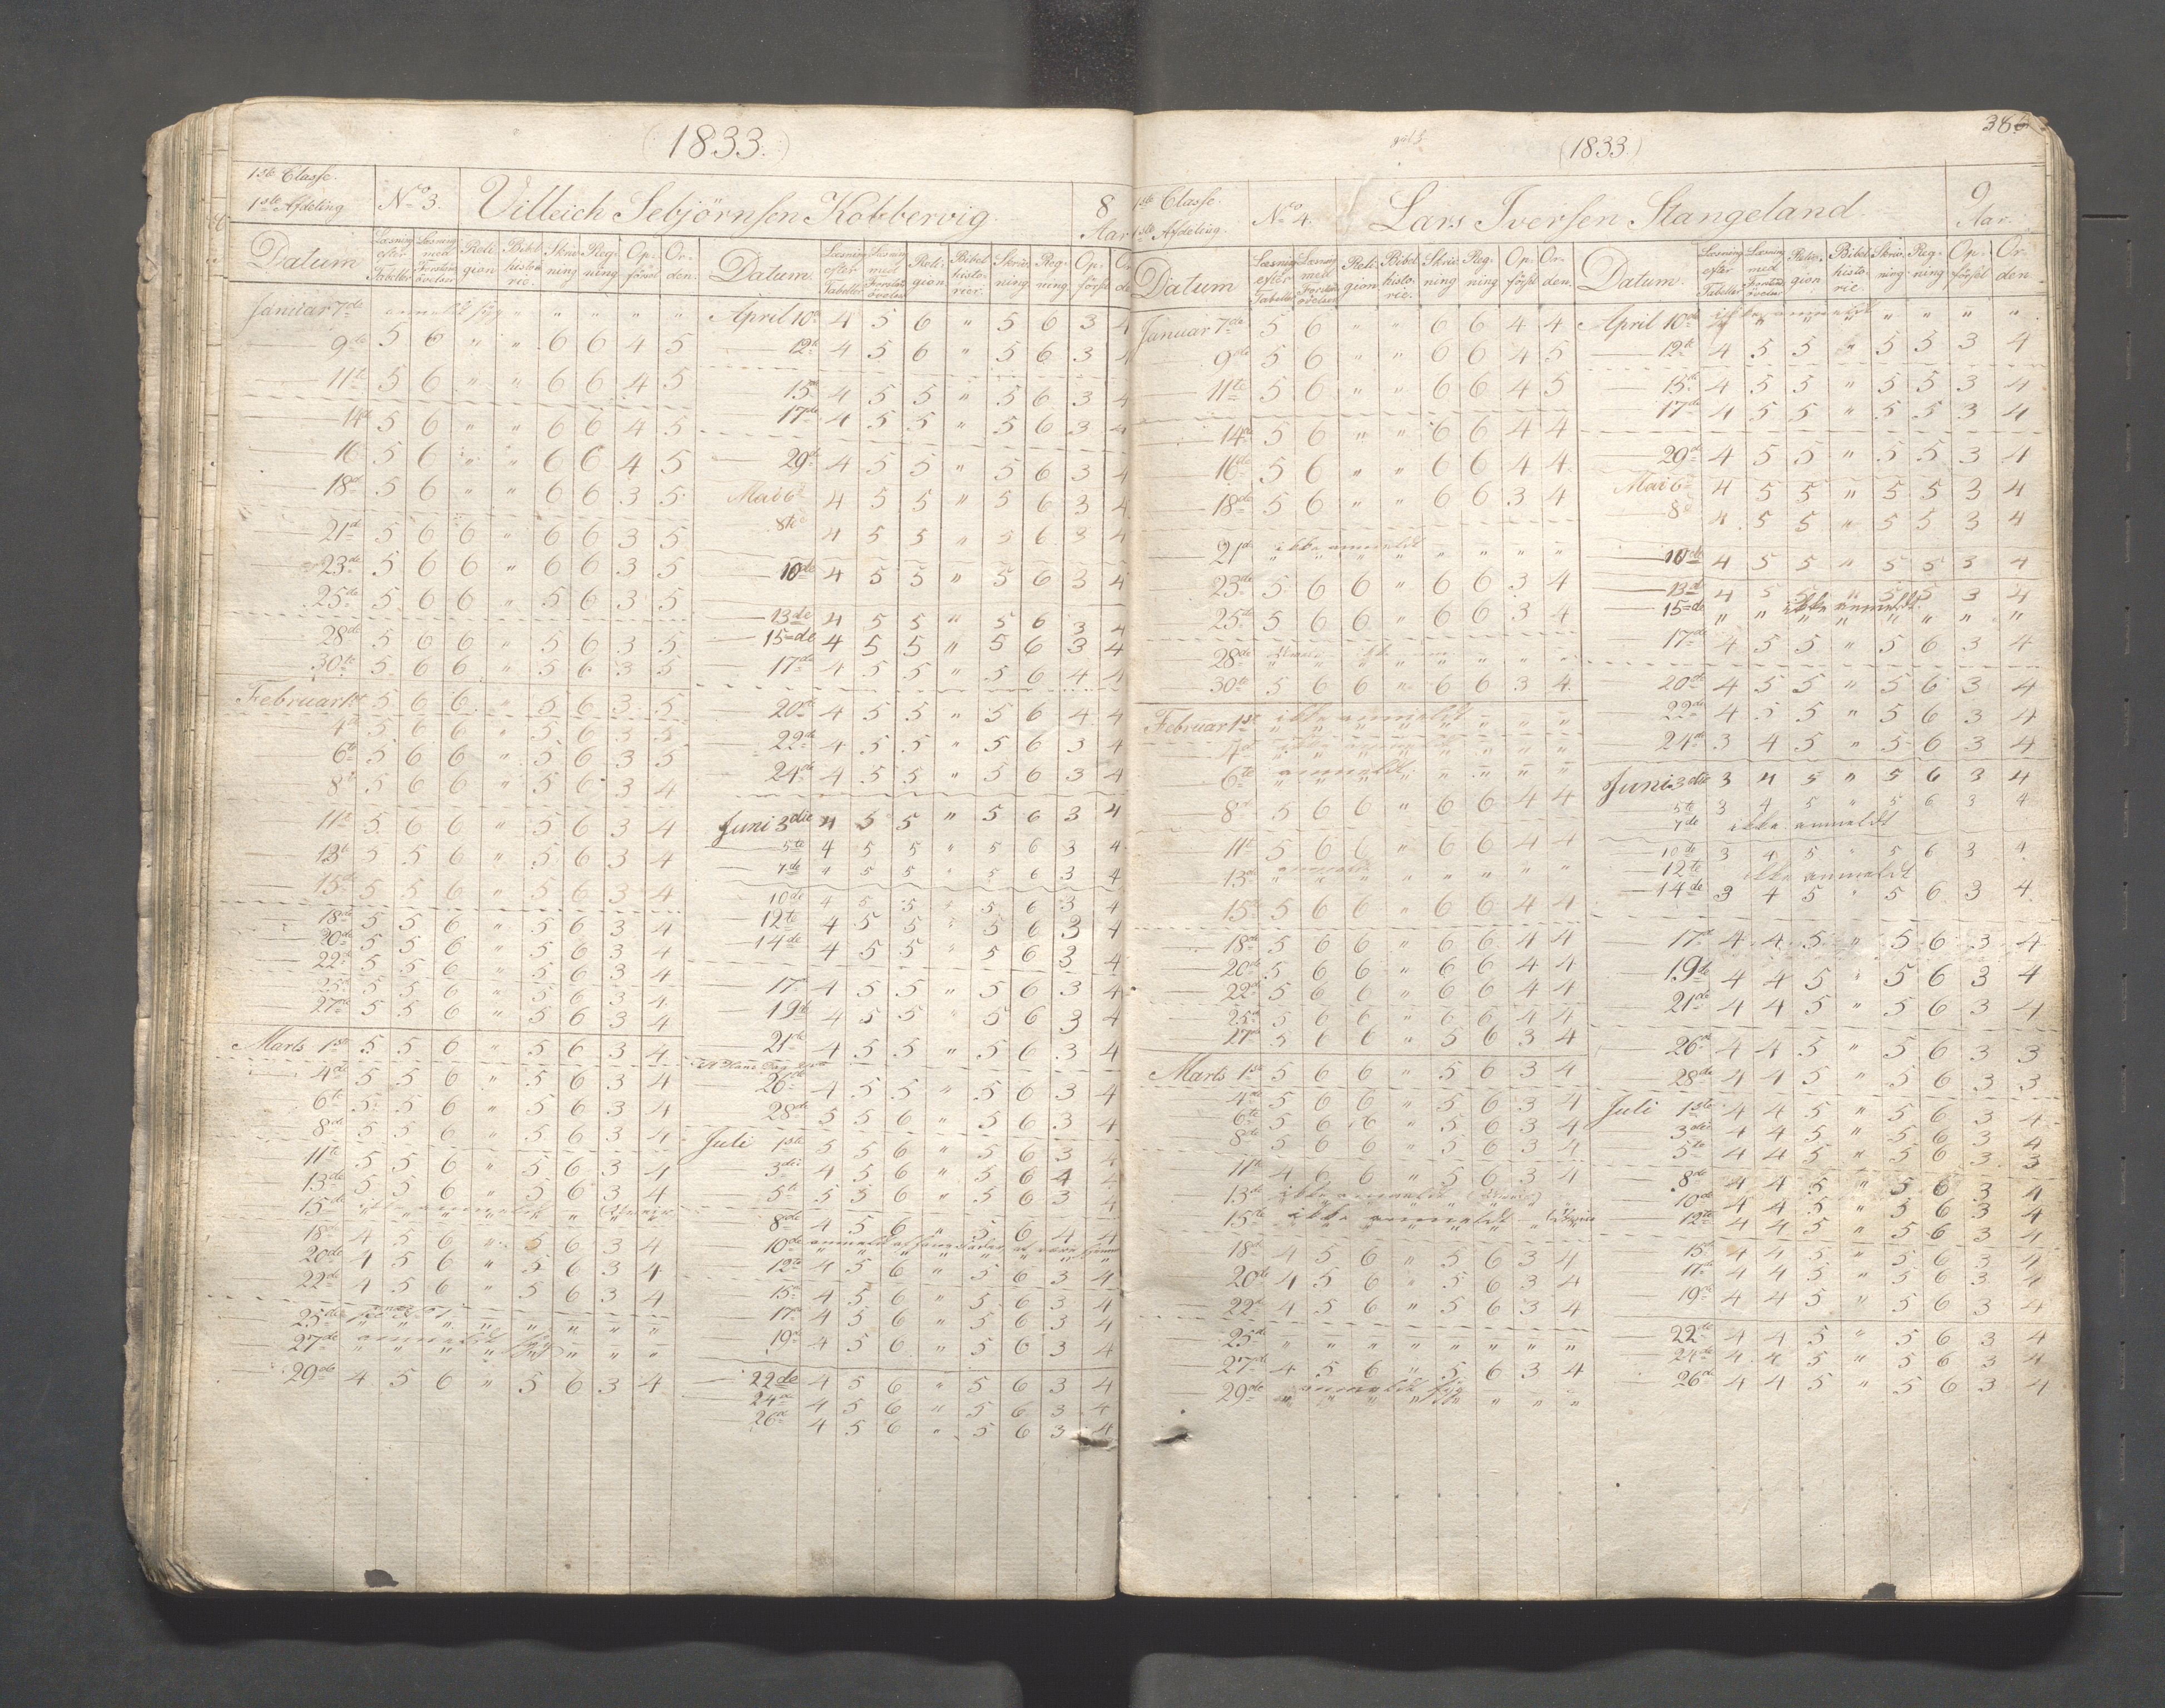 (1833.)
1ste Classe.
1ste Afdeling
No 3.
Villeich Sebjörnsen Kobbervig.
8 Aar
Datum
Læsning efter Tabeller
Læsning med Forstands övelser
Religion
Bibelhistorie.
Skrivning
Regning
Opförsel
Orden.
Januar 7de anmeldt syg " " " " "
9de 5 6 " " 6 6 4 5
11te 5 6 " " 6 6 4 5
14de 5 6 " " 6 6 4 5
16 5 6 " " 6 6 4 5
18de 5 6 " " 6 6 3 5
21de 5 6 6 " 6 6 3 5
23de 5 6 6 " 6 6 3 5
25de 5 6 6 " 5 6 3 5
28de 5 6 6 " 5 6 3 5
30te 5 6 6 " 5 6 3 5
Februar 1st 5 6 6 " 5 6 3 5
4de 5 6 6 " 5 6 3 5
6te 5 6 6 " 5 6 3 5
8de 5 6 6 " 5 6 3 4
11te 5 6 6 " 5 6 3 4
13te 5 5 6 " 5 6 3 4
15de 5 5 6 " 5 6 3 4
18de 5 5 6 " 5 6 3 4
20de 5 5 6 " 5 6 3 4
22de 5 5 6 " 5 6 3 4
25de 5 5 6 " 5 6 3 4
27de 5 5 6 " 5 6 3 4
Marts 1ste 5 5 6 " 5 6 3 4
4de 5 5 6 " 5 6 3 4
6te 5 5 6 " 5 6 3 4
8de 5 5 6 " 5 6 3 4
11te 5 5 6 " 5 6 3 4
13de 5 5 6 " 5 6 3 4
15de ikke anmeldt
18de 4 5 6 " 5 6 3 4
20de 4 5 6 " 5 6 3 4
22de 4 5 6 " 5 6 3 4
25de " " " " " "
27de anmeldt syg " " "
29de 4 5 6 " 5 6 3 4
Datum
Læsning efter Tabeller
Læsning med Forstands övelser
Religion
Bibelhistorie.
Skrivning.
Regning.
Opförsel
April 10de 4 5 6 " 5 6 3 4
12te 4 5 6 " 5 6 3 4
15de 4 5 5 " 5 6 3 4
17de 4 5 5 " 5 6 3 4
29de 4 5 5 " 5 6 3 4
Mai 6te 4 5 5 " 5 6 3 4
8de 4 5 5 " 5 6 3 4
10de 4 5 5 " 5 6 3 4
13de 4 5 5 " 5 6 3 4
15de 4 5 5 " 5 6 3 4
17de 4 5 5 " 5 6 4 4
20de 4 5 5 " 5 6 4 4
22de 4 5 5 " 5 6 3 4
24de 4 5 5 " 5 6 3 4
Juni 3die 4 5 5 " 5 6 3 4
5te 4 5 5 " 5 6 3 4
7de 4 5 5 " 5 6 3 4
10de 4 5 5 " 5 6 3 4
12te 4 5 5 " 5 6 3 4
14de 4 5 5 " 5 6 3 4
17de 4 5 5 " 5 6 3 4
19de 4 5 5 " 5 6 3 4
21de 4 5 5 " 5 6 3 4
26de 4 5 5 " 5 6 3 4
28de 5 5 6 " 5 6 3 4
Juli 1ste 5 5 6 " 5 6 3 4
3die 4 5 6 " 5 6 4 4
5te 5 5 6 " 5 6 3 4
8de 4 5 6 " 5 6 4 4
10de anmeldt af
12te 4 5 6 " 5 6 3 4
15de 4 5 6 " 5 6 3 4
17de 4 5 6 " 5 6 3 4
19de 4 5 6 " 5 6 3 4
22de 4 5 6 " 5 6 3 4
24de 4 5 6 " 5 6 3 4
26de 4 5 6 " 5 6 3 4
386
(1833.)
1ste Classe.
1ste Afdeling.
No 4.
Lars Iversen Stangeland.
9 Aar.
Datum
Læsning efter Tabeller
Læsning med Forstands övelser
Religion
Bibelhistorie.
Skrivning
Regning
Opförsel
Orden.
Januar 7de 5 6 " " 6 6 4 4
9de 5 6 " " 6 6 4 5
11te 5 6 " " 6 6 4 5
14de 5 6 " " 6 6 4 4
16de 5 6 " " 6 6 4 4
18de 5 6 " " 6 6 3 4
21de ikke anmeldt " " " "
23de 5 6 6 " 6 6 3 4
25de 5 6 6 " 6 6 3 4
28de " " " " " "
30te 5 6 6 " 6 6 3 4
Februar 1ste ikke anmeldt
6te anmeldt " " " "
8de 5 6 6 " 6 6 4 4
11te 5 6 6 " 6 6 4 4
13de anmeldt " " " " "
15de 5 6 6 " 6 6 4 4
18de 5 6 6 " 6 6 4 4
20de 5 6 6 " 6 6 4 4
22de 5 6 6 " 6 6 4 4
25de 5 6 6 " 6 6 4 4
27de 5 6 6 " 5 6 3 4
Marts 1ste 5 6 6 " 5 6 3 4
4de 5 6 6 " 5 6 3 4
6te 5 6 6 " 5 6 3 4
8de 5 6 6 " 5 6 3 4
11te 4 6 6 " 5 6 3 4
13de ikke anmeldt
15de ikke anmeldt
18de 4 5 6 " 5 6 3 4
20de 4 5 6 " 5 6 3 4
22de 4 5 6 " 5 6 3 4
25de " " " " " " " "
27de 4 5 6 " 5 6 3 4
29de anmeldt syg " " "
Datum.
Læsning efter Tabeller
Læsning med Forstands övelser
Religion
Bibelhistorie.
Skrivning.
Regning
Opförsel
Orden
April 10de ikke anmeldt " " " "
12te 4 5 5 " 5 5 3 4
15de 4 5 5 " 5 5 3 4
17de 4 5 5 " 5 5 3 4
29de 4 5 5 " 5 5 3 4
Mai 6te 4 5 5 " 5 5 3 4
8de 4 5 5 " 5 5 3 4
10de 4 5 5 " 5 5 3 4
13de 4 5 5 " 5 5 3 4
15de ikke anmeldt. " " "
17de 4 5 5 " 5 6 3 4
20de 4 5 5 " 5 6 3 4
22de 4 5 5 " 5 6 3 4
24de 3 4 5 " 5 6 3 4
Juni 3die 3 4 5 " 5 6 3 4
5te 3 4 5 " 5 6 3 4
7de ikke anmeldt
10de 3 4 5 " 5 6 3 4
12te ikke anmeldt
14de 3 4 5 " 5 6 3 4
17de 4 4 5 " 5 6 3 4
19de 4 4 5 " 5 6 3 4
21de 4 4 5 " 5 6 3 4
26de 4 4 5 " 5 6 3 3
28de 4 4 5 " 5 6 3 3
Juli 1ste 4 4 5 " 5 6 3 4
3die 4 4 5 " 5 6 3 4
5te 4 4 5 " 5 6 3 3
8de 4 4 5 " 5 6 3 4
10de 4 4 5 " 5 6 3 4
12te 4 4 5 " 5 6 3 4
15de 4 4 5 " 5 6 3 4
17de 4 4 5 " 5 6 3 4
19de 4 4 5 " 5 6 3 4
22de 4 4 5 " 5 6 3 4
24de 4 4 5 " 5 6 3 4
26de 4 4 5 " 5 6 3 4